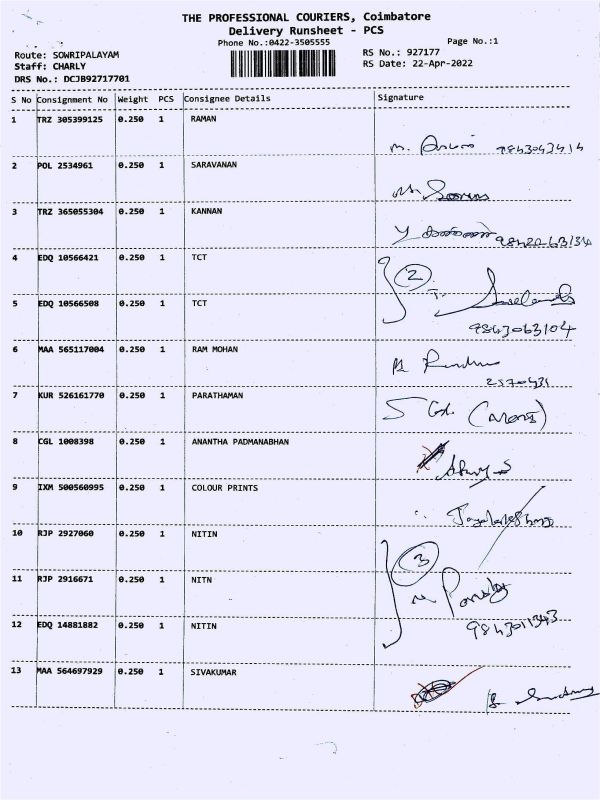 THE PROFESSIONAL COURIERS, Coimbatore
Delivery Runsheet - PCS
Phone No.:0422-3505555
Page No.:1
Route: SOWRIPALAYAM
RS No.: 927177
Staff: CHARLY
RS Date: 22-Apr-2022
DRS No.: DCJB92717701
S No Consignment No Weight PCS Consignee Details Signature
1 TRZ 305399125 0.250 1 RAMAN
9843043414
2 POL 2534961 0.250 1 SARAVANAN
3 TRZ 365055304 0.250 1 KANNAN
4 EDQ 10566421 0.250 1 TCT
2
5 EDQ 10566508 0.250 1 TCT
9843063104
6 MAA 565117004 0.250 1 RAM MOHAN
2570431
7 KUR 526161770 0.250 1 PARATHAMAN
8 CGL 1008398 0.250 1 ANANTHA PADMANABHAN
9 IXM 500560995 0.250 1 COLOUR PRINTS
10 RJP 2927060 0.250 1 NITIN
3
11 RJP 2916671 0.250 1 NITN
12 EDQ 14881882 0.250 1 NITIN
9843011343
13 MAA 564697929 0.250 1 SIVAKUMAR